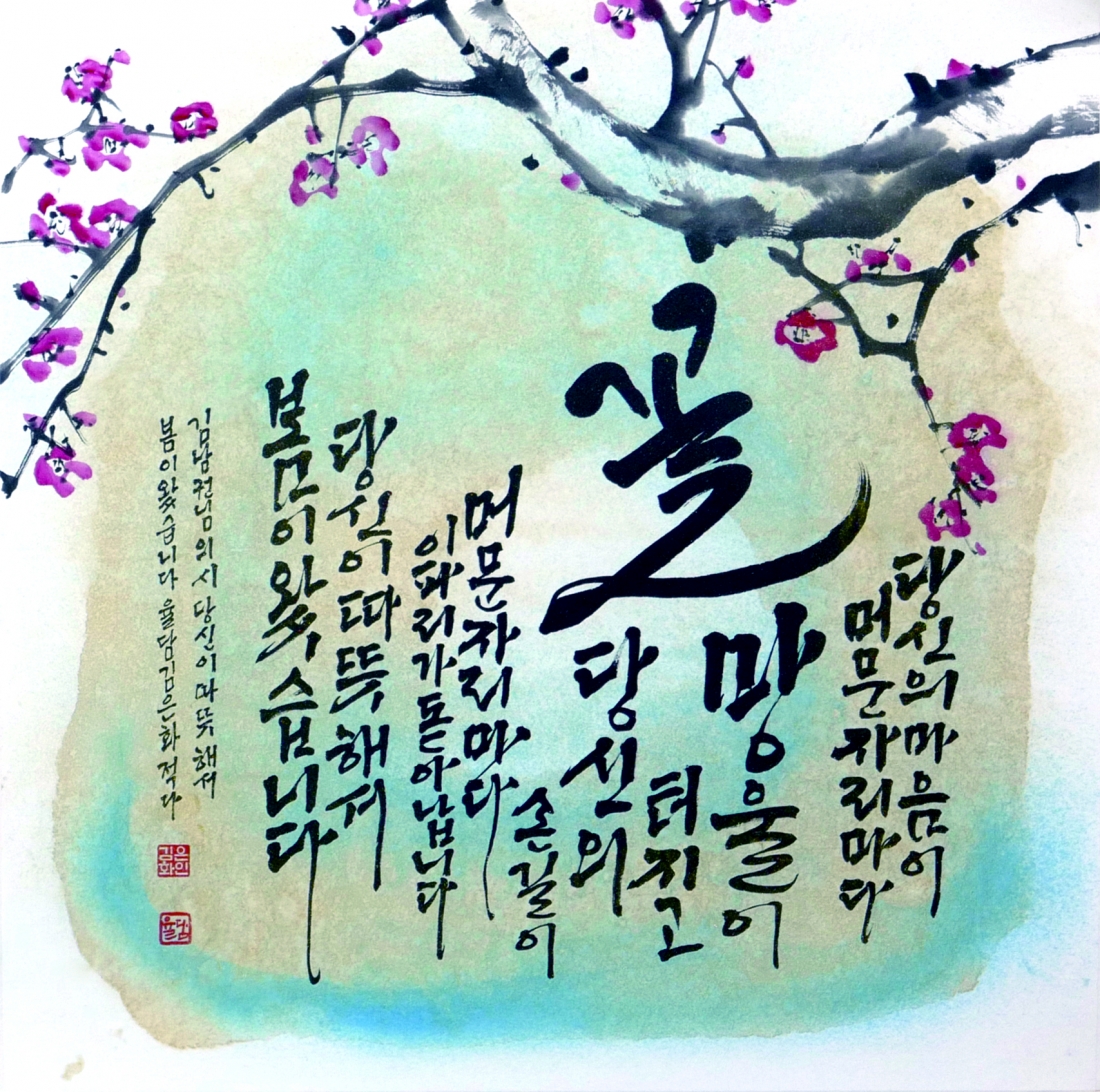 당신의마음이
머문자리마다
꽃망울이
터지고
당신의
손길이
머문자리마다
이파리가돋아납니다
당신이따뜻해서
봄이왔습니다
김남권님의시 당신이따뜻해서
봄이왔습니다 율담김은화적다
김은화인
율담